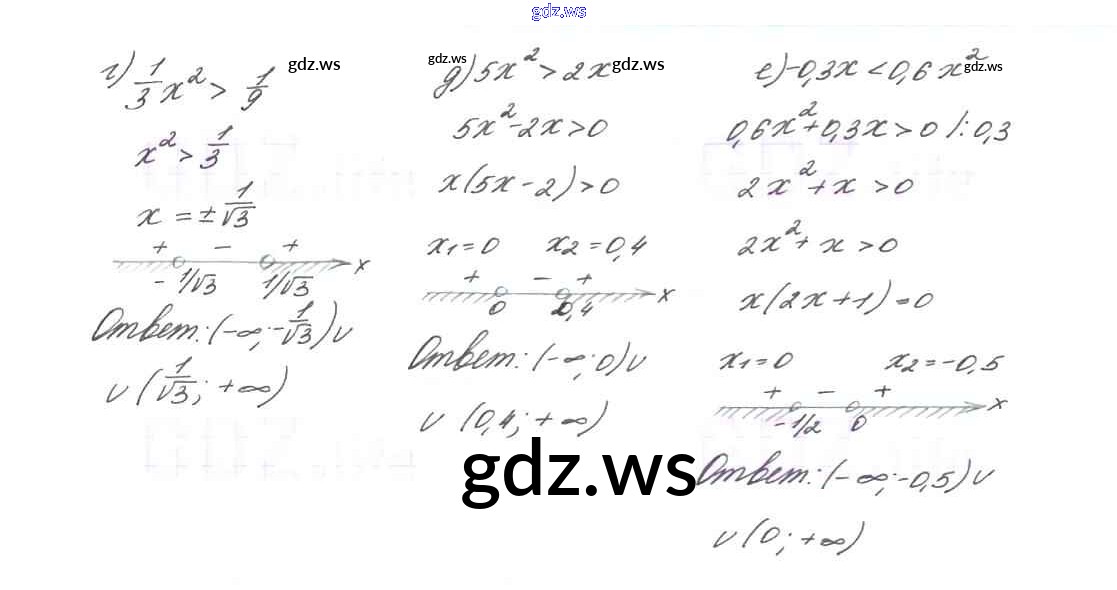 gdz.ws
г) 1/3 x² > 1/9
gdz.ws
x² > 1/3
x = ± 1/√3
+ − +
− 1/√3 1/√3 x
Ответ: (−∞; −1/√3) ∪
∪ (1/√3; +∞)
gdz.ws
д) 5x² > 2x
gdz.ws
5x² − 2x > 0
x(5x − 2) > 0
x₁ = 0 x₂ = 0,4
+ − +
0 0,4 x
Ответ: (−∞; 0) ∪
∪ (0,4; +∞)
gdz.ws
е) −0,3x < 0,6x²
gdz.ws
0,6x² + 0,3x > 0 /: 0,3
2x² + x > 0
2x² + x > 0
x(2x + 1) = 0
x₁ = 0 x₂ = −0,5
+ − +
−1/2 0 x
Ответ: (−∞; −0,5) ∪
∪ (0; +∞)